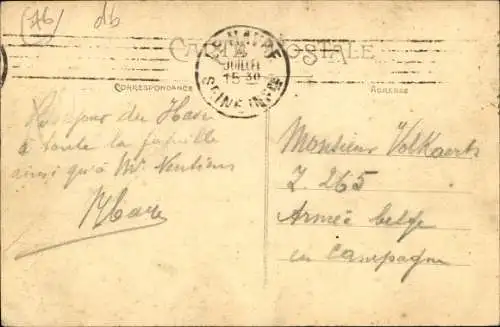 (Ab) db
CARTE POSTALE
LE HAVRE
JUILLET
15 30
SEINE INFRE
CORRESPONDANCE
ADRESSE
Bonjour du Havre
à toute la famille
ainsi qu'à Mr
Monsieur Volkaerts
Z. 265
Armée belge
en campagne